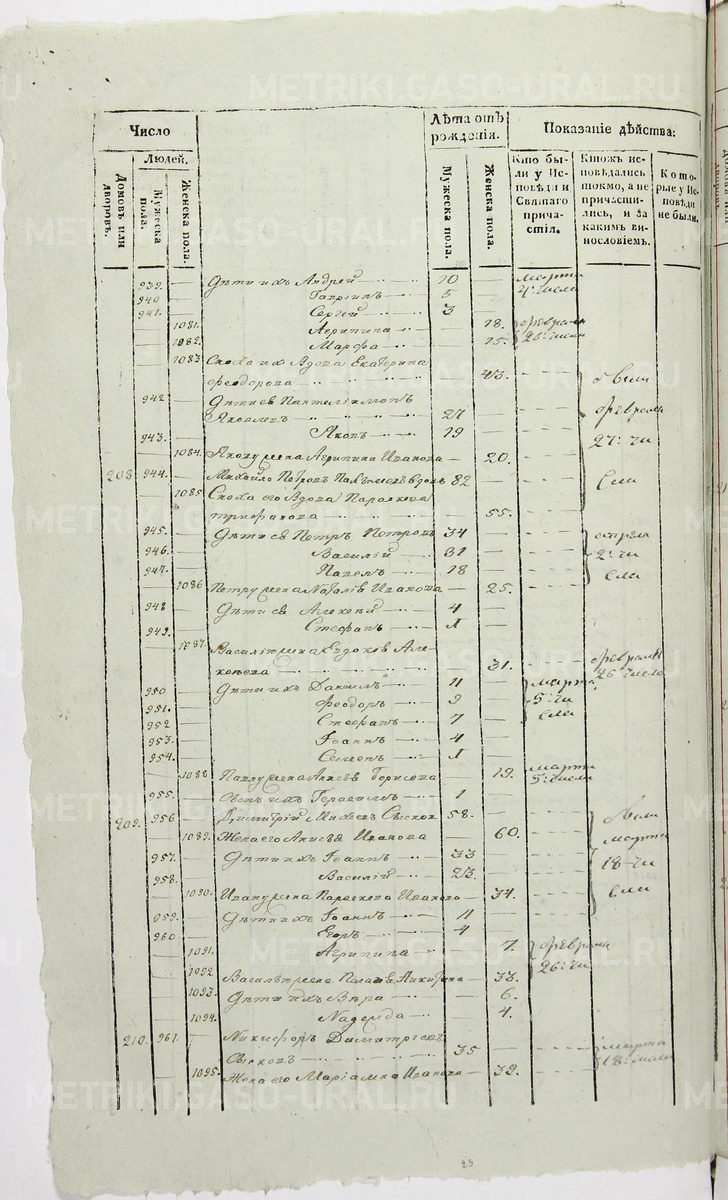 Число
Лѣта отъ рожденія.
Показаніе дѣйства:
Людей.
Домовъ или дворовъ.
Мужеска пола.
Женска пола.
Мужеска пола.
Женска пола.
Кто были у Исповѣди и Святаго причастія.
Ктожъ исповѣдались токмо, а не причастились, и за какимъ винословіемъ.
Которые у Исповѣди не были.
939. Дѣти ихъ Андрей 10 марта
940 Гавріилъ 5 4 числа
941. Сергей 3
1081. Агрипина 18. февраля
1082. Марфа 15. 26 числа
1083 Сноха их вдова Екатерина
Феодорова 43. были
942 Дѣти ев Пантелиимонъ
Яковлевъ 27 февраля
943. Яковъ 19 27 чи
1084. Якову жена Агрипина Иванова 20.
208. 944. Михайло Петровъ вдовъ 82 сла
1085 Сноха его вдова Параскева
Трифанова 55.
945. Дѣти ев Петръ Петровъ 34
946. Василій 31 2 чи
947. Павелъ 18 сла
1086 Петру жена Наталія Иванова 25.
948 Дѣти ев Алексей 4
949. Стефанъ 1
1087. Василію жена Евдокія Але
ксеева 31. февраля 26 числа
950 Дѣти ихъ Даниилъ 11 марта
951. Феодоръ 9 5 чи
952 Стефанъ 7 сла
953. Іоаннъ 4
954. Семенъ 1
1088. Павлу жена Борисова 19. марта 5 числа
955. Сынъ ихъ Герасимъ 1
209. 956 Димитрій 58. были
1089. Жена его Анисья Иванова 60. марта
957. Дѣти ихъ Іоаннъ 33 18 чи
958. Василій 23. сла
1090. Ивану жена Параскева Иванова 34.
959. Дѣти ихъ Іоаннъ 11
960 Егоръ 4
1091. Агрипина 7. февраля
1092 Василью жена Никитина 33. 26 чи
1093. Дѣти ихъ Вѣра 6.
1094. Надежда 4.
210. 961. Никифоръ Димитріевъ
35 марта
1095. Жена его Маріамна Иванова 32. 18 числа
METRIKI.GASO-URAL.RU